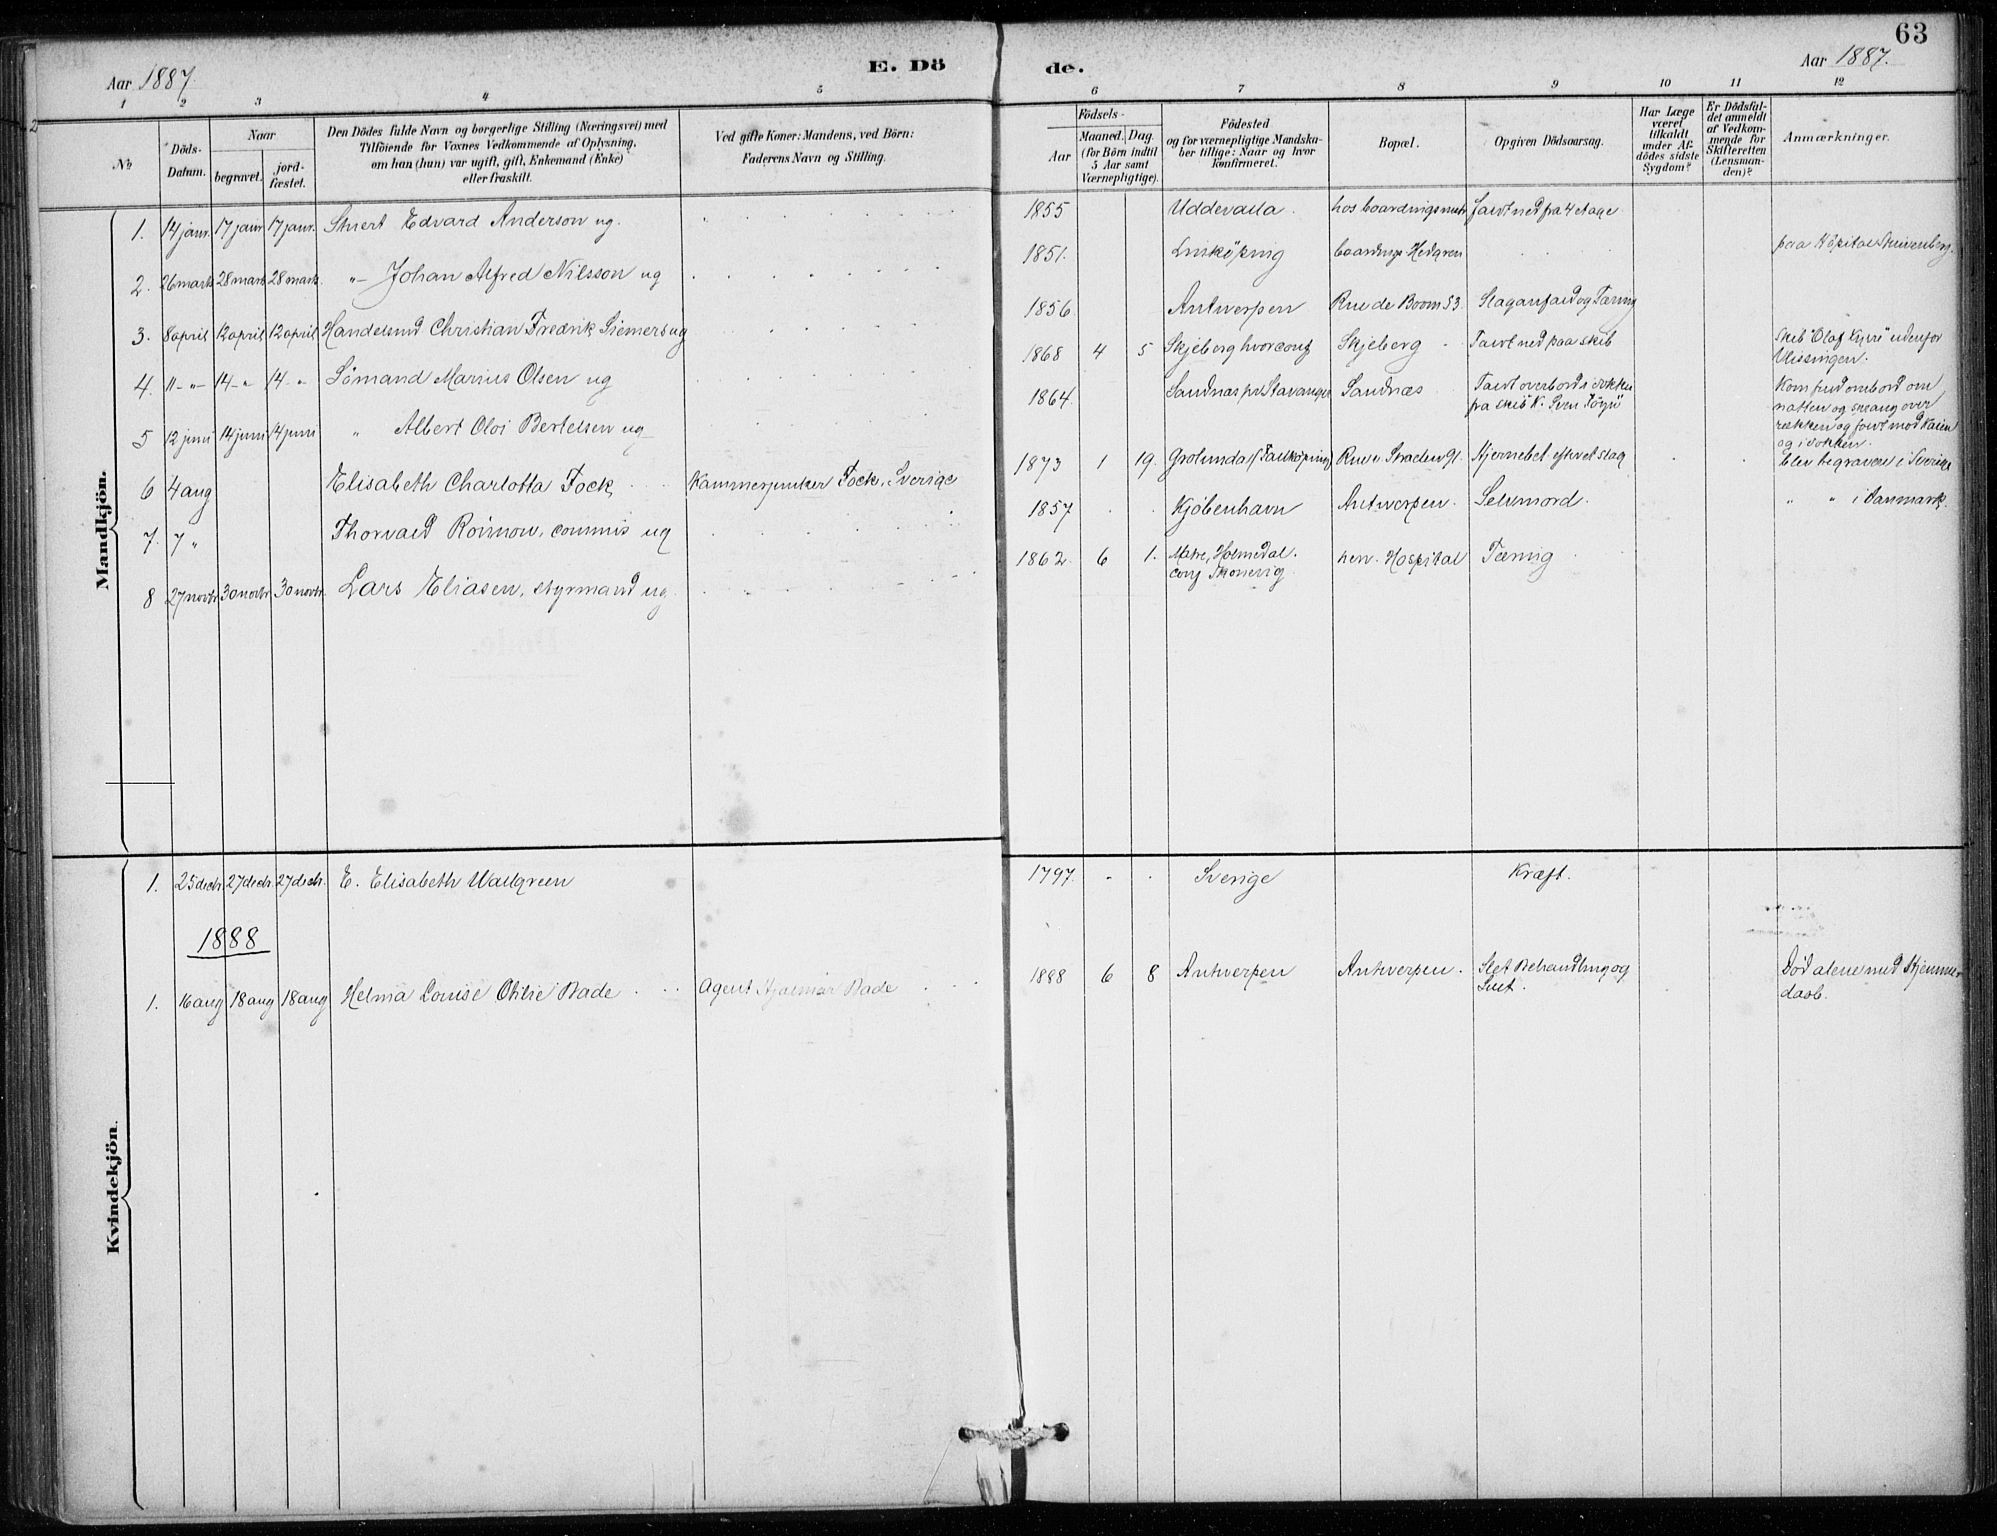 63
Aar 1887
E. Döde.
Aar 1887.
1 2 3 4 5 6 7 8 9 10 11 12
No
Döds-Datum.
Naar
begravet.
jord-fæstet.
Den Dödes fulde Navn og borgerlige Stilling (Næringsvei) med
Tilföiende for Voxnes Vedkommende af Oplysning,
om han (hun) var ugift, gift, Enkemand (Enke)
eller fraskilt.
Ved gifte Koner: Mandens, ved Börn:
Faderens Navn og Stilling.
Födsels-
Aar
Maaned. Dag.
(for Börn indtil
5 Aar samt
Værnepligtige).
Födested
og for værnepligtige Mandska-
ber tillige: Naar og hvor
konfirmeret.
Bopæl.
Opgiven Dödsaarsag.
Har Læge
været
tilkaldt
under Af-
dödes sidste
Sygdom?
Er Dödsfal-
det anmeldt
af Vedkom-
mende for
Skifteretten
(Lensman-
den)?
Anmærkninger.
Mandkjön.
1. 14 janr. 17 janr 17 janr. Edvard Anderson ug. 1855 Uddevalla. hos boardingsmstr faldt ned fra 4 etage
2. 26 marts 28 marts 28 marts. "– Johan Alfred Nilsson ug 1851. Linköping boardings Hedgren paa Hospital Stuivenberg.
3. 8 april 12 april 12 april Handelsmd Christian Fredrik Siemers ug 1856 Antwerpen Rue de Boom 53. Slaganfald og Tæring
4. 11 –"– 14 –" 14 –" Sömand Marius Olsen ug 1868 4 5 Skjeberg hvor conf Skjeberg Faldt ned paa skib
skib "Olaf Kyrre" udenfor
Vlissingen.
5 12 juni 14 juni 14 juni " Albert Oloi Bertelsen ug 1864. Sandnæs pr Stavanger Sandnæs Faldt overbord i dokken
fra skib K. Sven Föyn
Kom fuld ombord om
natten og sprang over
rækken og faldt mod kaien
og i dokken.
6 4 aug Elisabeth Charlotta Fock, Kammerjunker Fock, Sverige 1873 1 19. Grolunda (Falköping) Rue v. Straelen 91. Hjernebet efter et slag Blev begraven i Sverige
7. 7 " Thorvald Rönnow, commis ug 1857 Kjöbenhavn Antwerpen. Selvmord. " " i Danmark.
8 27 novbr 30 novbr 30 novbr. Lars Eliasen, styrmand ug. 1862. 6 1. Matre, Holmedal.
conf Skonevig. hen. Hospital Tæring
Kvindekjön.
1. 25 decbr. 27 decbr. 27 decbr. E. Elisabeth Wallgreen 1797. Sverige Kræft.
1888
1. 16 aug 18 aug 18 aug Helma Louise Otilie Bade Agent Hjalmar Bade 1888 6 8 Antwerpen Antwerpen. Slet Behandling og
Sult.
Död alene med Hjemme-
daab.